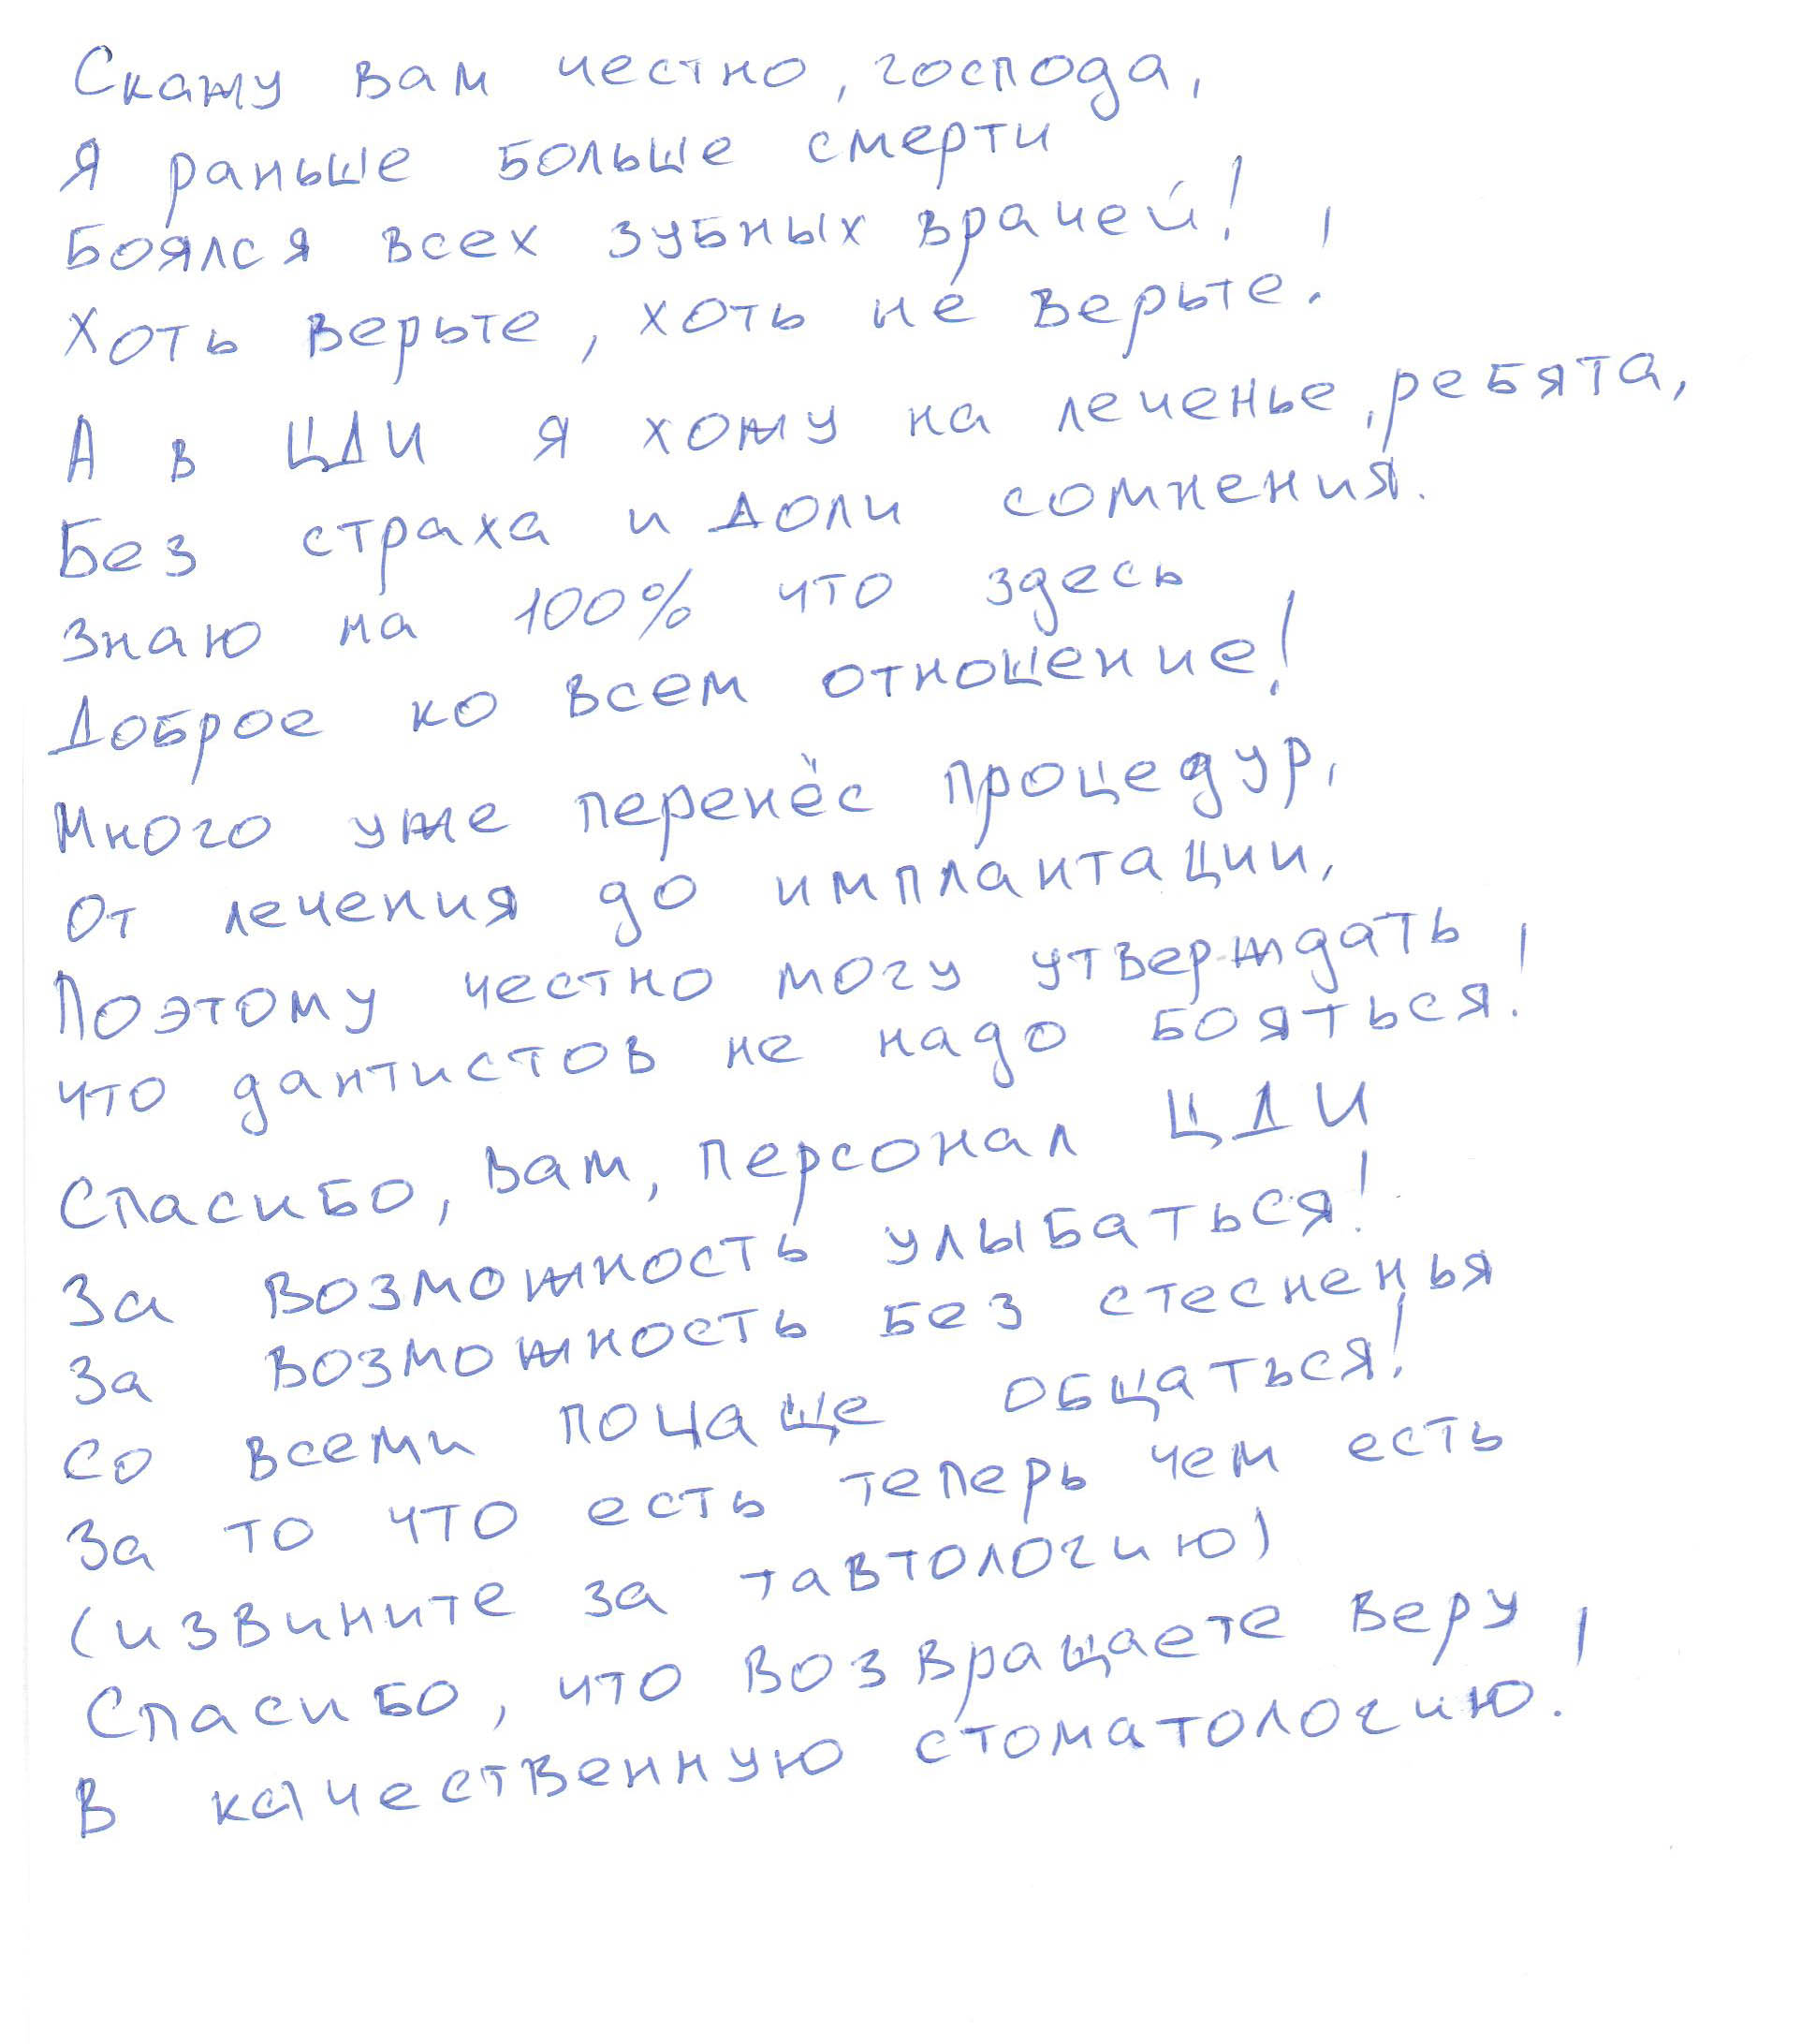 Скажу вам честно, господа,
Я раньше больше смерти
Боялся всех зубных врачей!
Хоть верьте, хоть не верьте!
А в ЦДИ я хожу на леченье, ребята,
Без страха и доли сомнения.
Знаю на 100% что здесь
Доброе ко всем отношение!
Много уже перенёс процедур,
От лечения до имплантации,
Поэтому честно могу утверждать
что дантистов не надо бояться!
Спасибо, вам, персонал ЦДИ
За возможность улыбаться!
За возможность без стесненья
Со всеми почаще общаться!
За то что есть теперь чем есть
(извините за тавтологию)
Спасибо, что возвращаете веру
В качественную стоматологию!